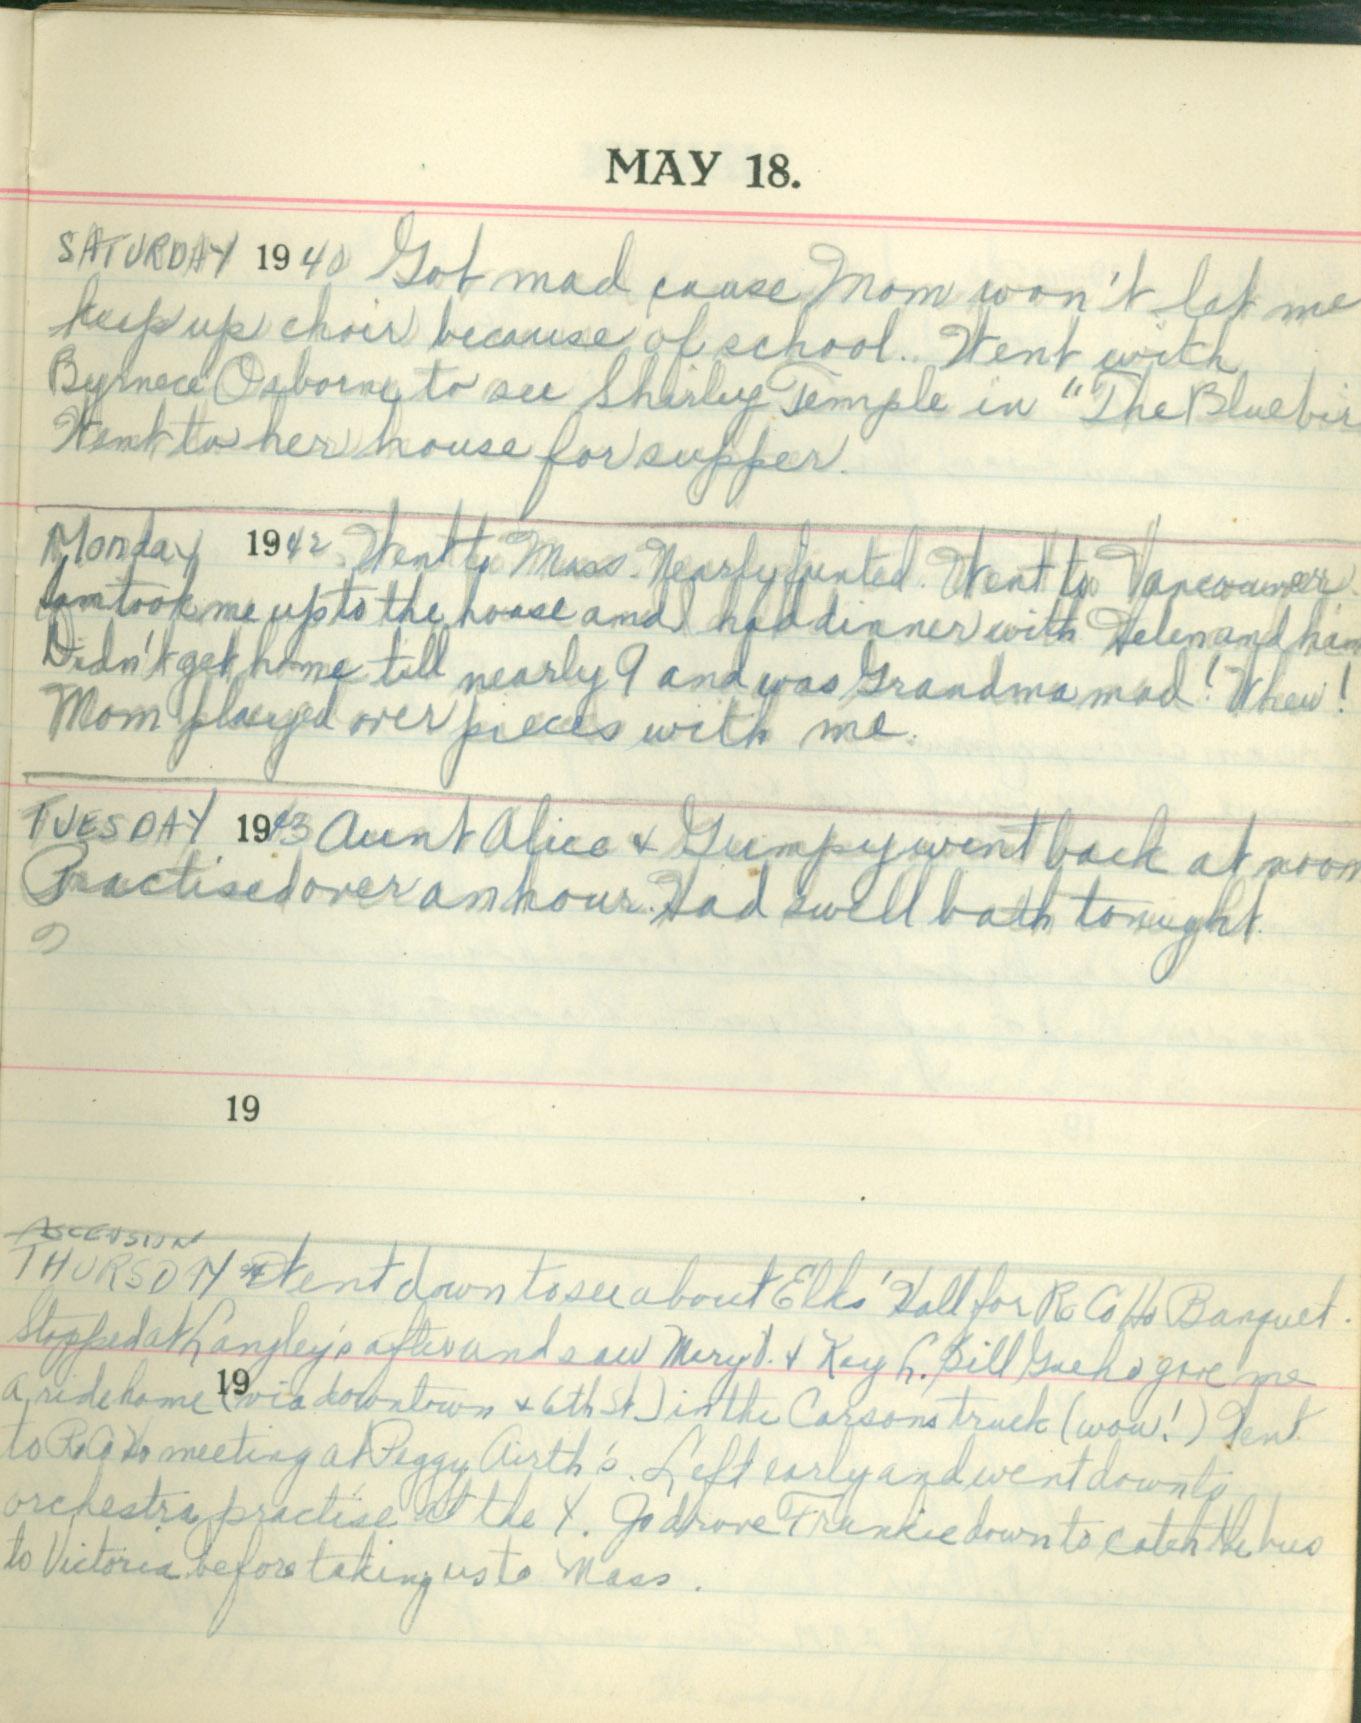 MAY 18.
SATURDAY 1940 Got mad cause Mom won't let me
keep up choir because of school. Went with
Byrnece Osborne to see Shirley Temple in "The Bluebir
Went to her house for supper.
Monday 1942 Went to Mass. Nearly fainted. Went to Vancouver.
Sam took me up to the house and had dinner with Helen and him
Didn't get home till nearly 9 and was Grandma mad! Whew!
Mom played over pieces with me.
TUESDAY 1943 Aunt Alice & Gumpy went back at noon
Practised over an hour. Had swell bath tonight.
19
ASCENSION
THURSDAY Went down to see about Elks' Hall for Banquet.
Stopped at Langley's after and saw Mary D. & Kay C. Bill gave me
19
a ride home (via downtown & 6th St.) in the Carsons truck (wow!) Went
to meeting at Peggy Airth's. Left early and went down to
orchestra practise at the Y. Jo drove Frankie down to catch the bus
to Victoria before taking us to Mass.